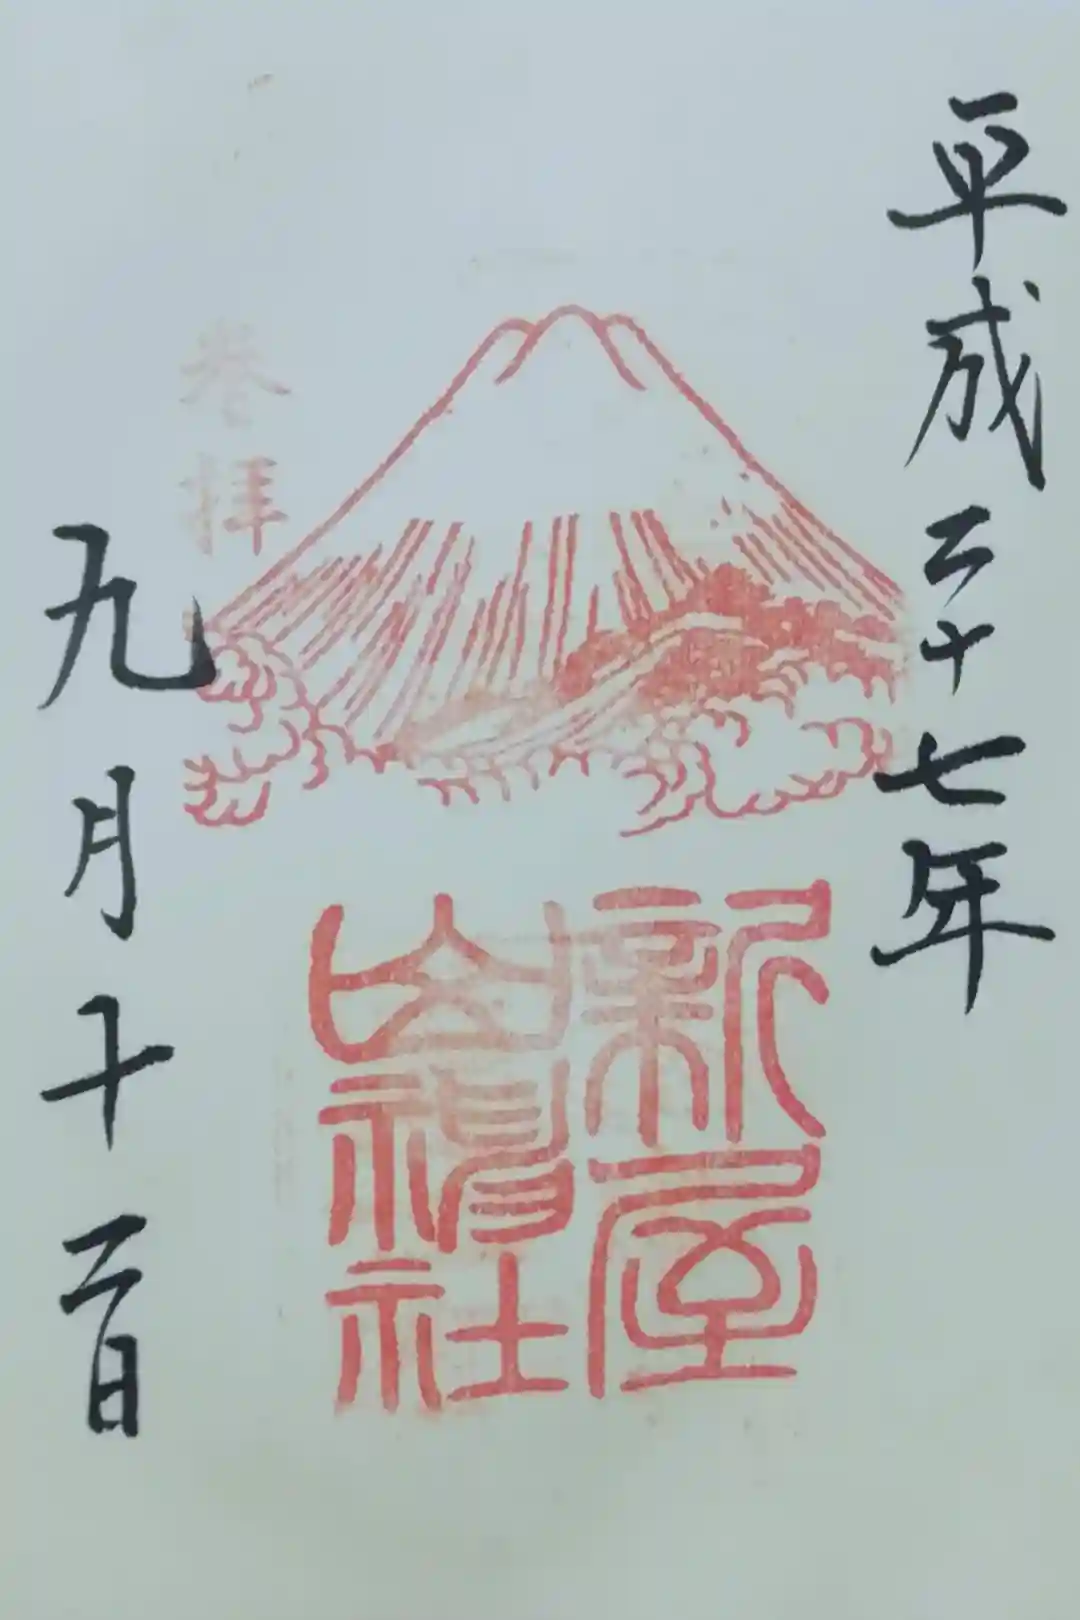 平成二十七年
新屋
山神社
奉拝
九月十二日